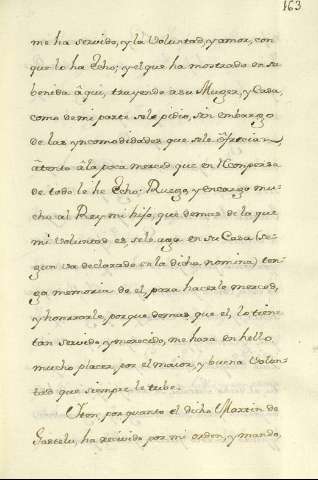 163
me ha servido, y la Voluntad, y amor, con
que lo ha Echo; y el que ha mostrado en su
benida â qui, trayendo a su Muger, y Casa,
como de mi parte se le pidio, sin embargo
de las yncomodidades que se le ôfrecian,
âtento â la poca merced que en Rconpensa
de todo le he Echo; Ruego, y encargo mu-
cho al Rey mi hijo, que demas de la que
mi Voluntad es, se le aga en su Casa (se-
gun va declarado en la dicha nomina) ten-
ga memoria de el, para hacerle merced,
y honrrarle, porque demas que el, lo tiene
tan servido, y merecido, me hara en hello
mucho placer, por el maior, y buena Volun-
tad que siempre le tube.
Yten, por quanto el dicho Martin de
Gastelu, ha recivido por mi orden, y mando,